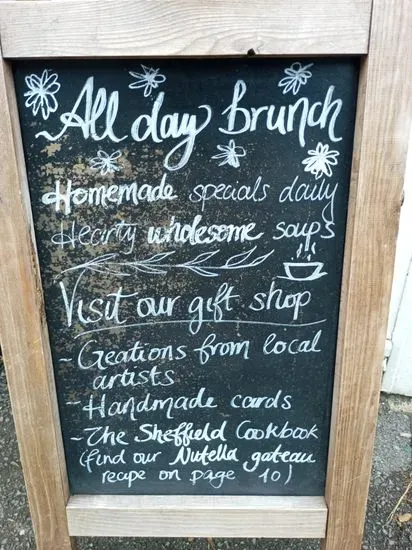 All day brunch
Homemade specials daily
Hearty wholesome soups
Visit our gift shop
- Creations from local
artists
- Handmade cards
- The Sheffield Cookbook
(find our Nutella gateau
recipe on page 10)